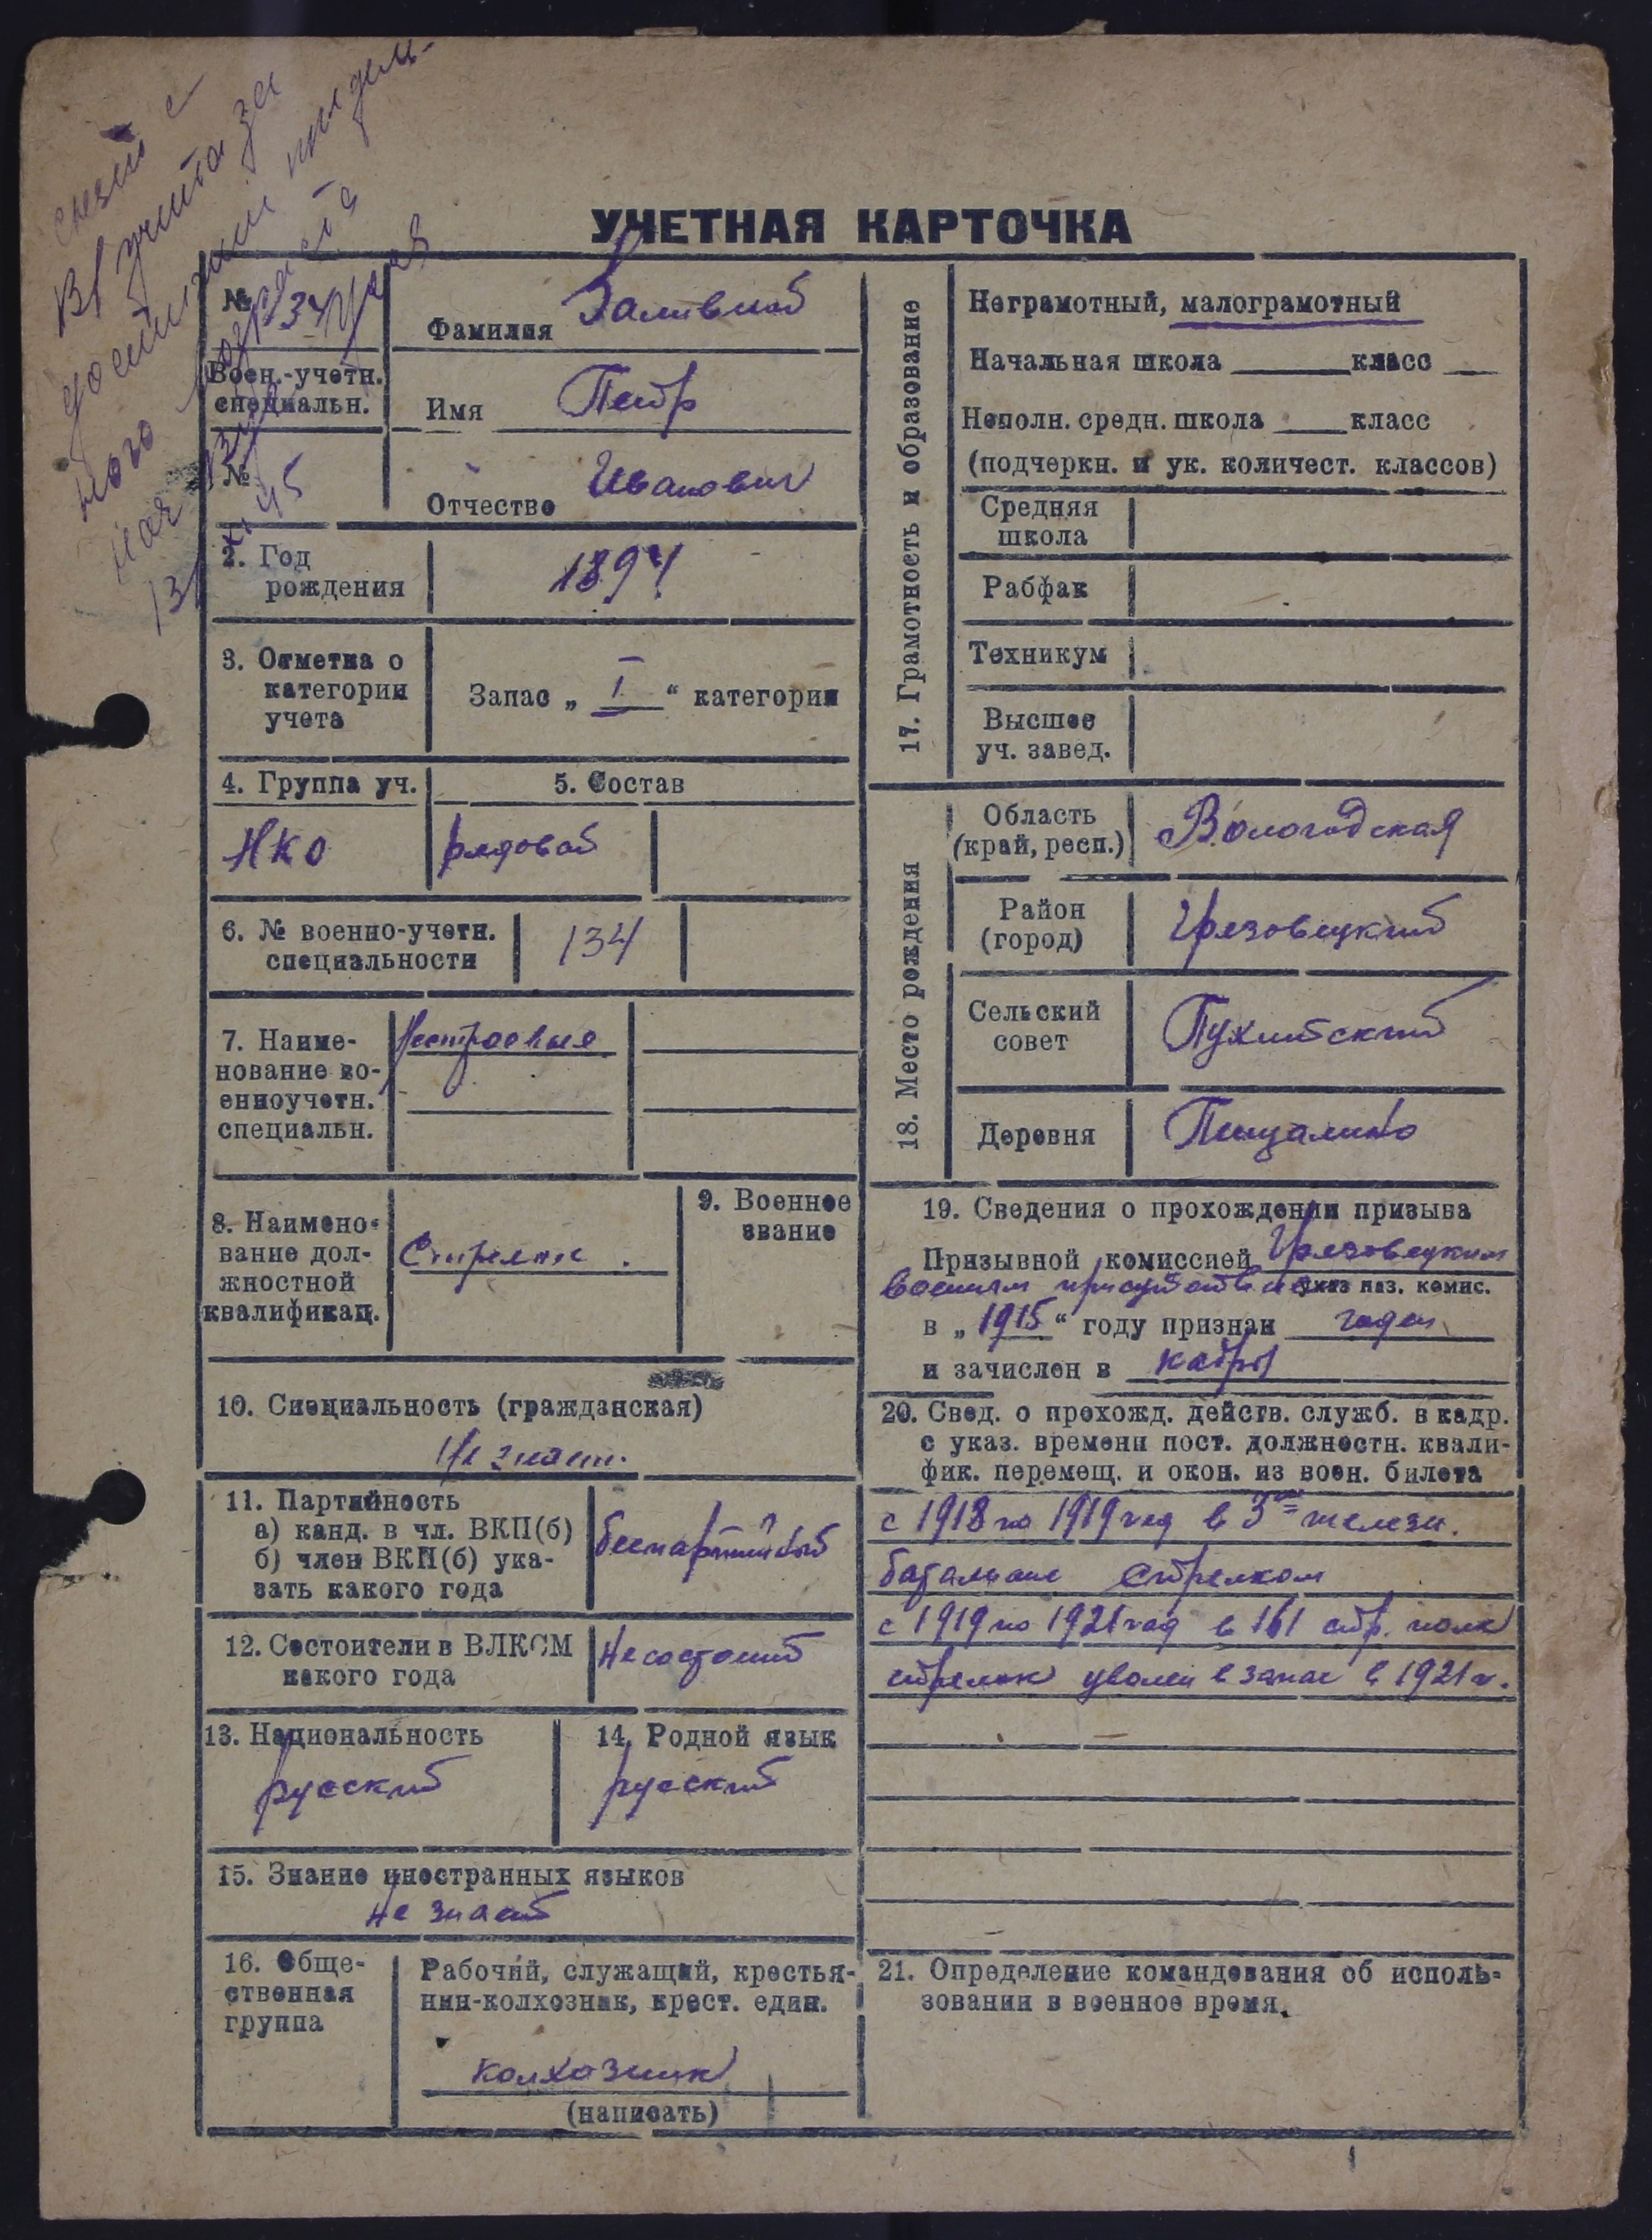 снят с
в/учета за
достижением предель-
ного возраста
УЧЕТНАЯ КАРТОЧКА
№ 134
Фамилия Заливной
Воен.-учетн.
специальн.
Имя Петр
№
Отчество Иванович
2. Год
рождения
1894
3. Отметка о
категории
учета
Запас „ I “ категории
4. Группа уч.
5. Состав
НКО
рядовой
6. № военно-учетн.
специальности
134
7. Наиме-
нование во-
енноучетн.
специальн.
Нестроевые
8. Наимено-
вание дол-
жностной
квалификац.
Стрелок.
9. Военное
звание
10. Специальность (гражданская)
Не знает.
11. Партийность
а) канд. в чл. ВКП(б)
б) член ВКП(б) ука-
зать какого года
беспартийный
12. Состоит ли в ВЛКСМ
какого года
Не состоит
13. Национальность
русский
14. Родной язык
русский
15. Знание иностранных языков
не знает
16. Обще-
ственная
группа
Рабочий, служащий, крестья-
нин-колхозник, крест. един.
колхозник
(написать)
17. Грамотность и образование
Неграмотный, малограмотный
Начальная школа ______ класс ___
Неполн. средн. школа ____ класс
(подчеркн. и ук. количест. классов)
Средняя
школа
Рабфак
Техникум
Высшее
уч. завед.
18. Место рождения
Область
(край, респ.)
Вологодская
Район
(город)
Грязовецкий
Сельский
совет
Пухитский
Деревня
Пищалино
19. Сведения о прохождении призыва
Призывной комиссией Грязовецким
военным присутствие указ наз. комис.
в „ 1915 “ году признан годен
и зачислен в кадры
20. Свед. о прохожд. действ. служб. в кадр.
с указ. времени пост. должностн. квали-
фик. перемещ. и окон. из воен. билета
с 1918 по 1919 год в 3ем железн.
батальоне стрелком
с 1919 по 1921 год в 161 стр. полк
стрелок уволен в запас в 1921 г.
21. Определение командования об исполь-
зовании в военное время.